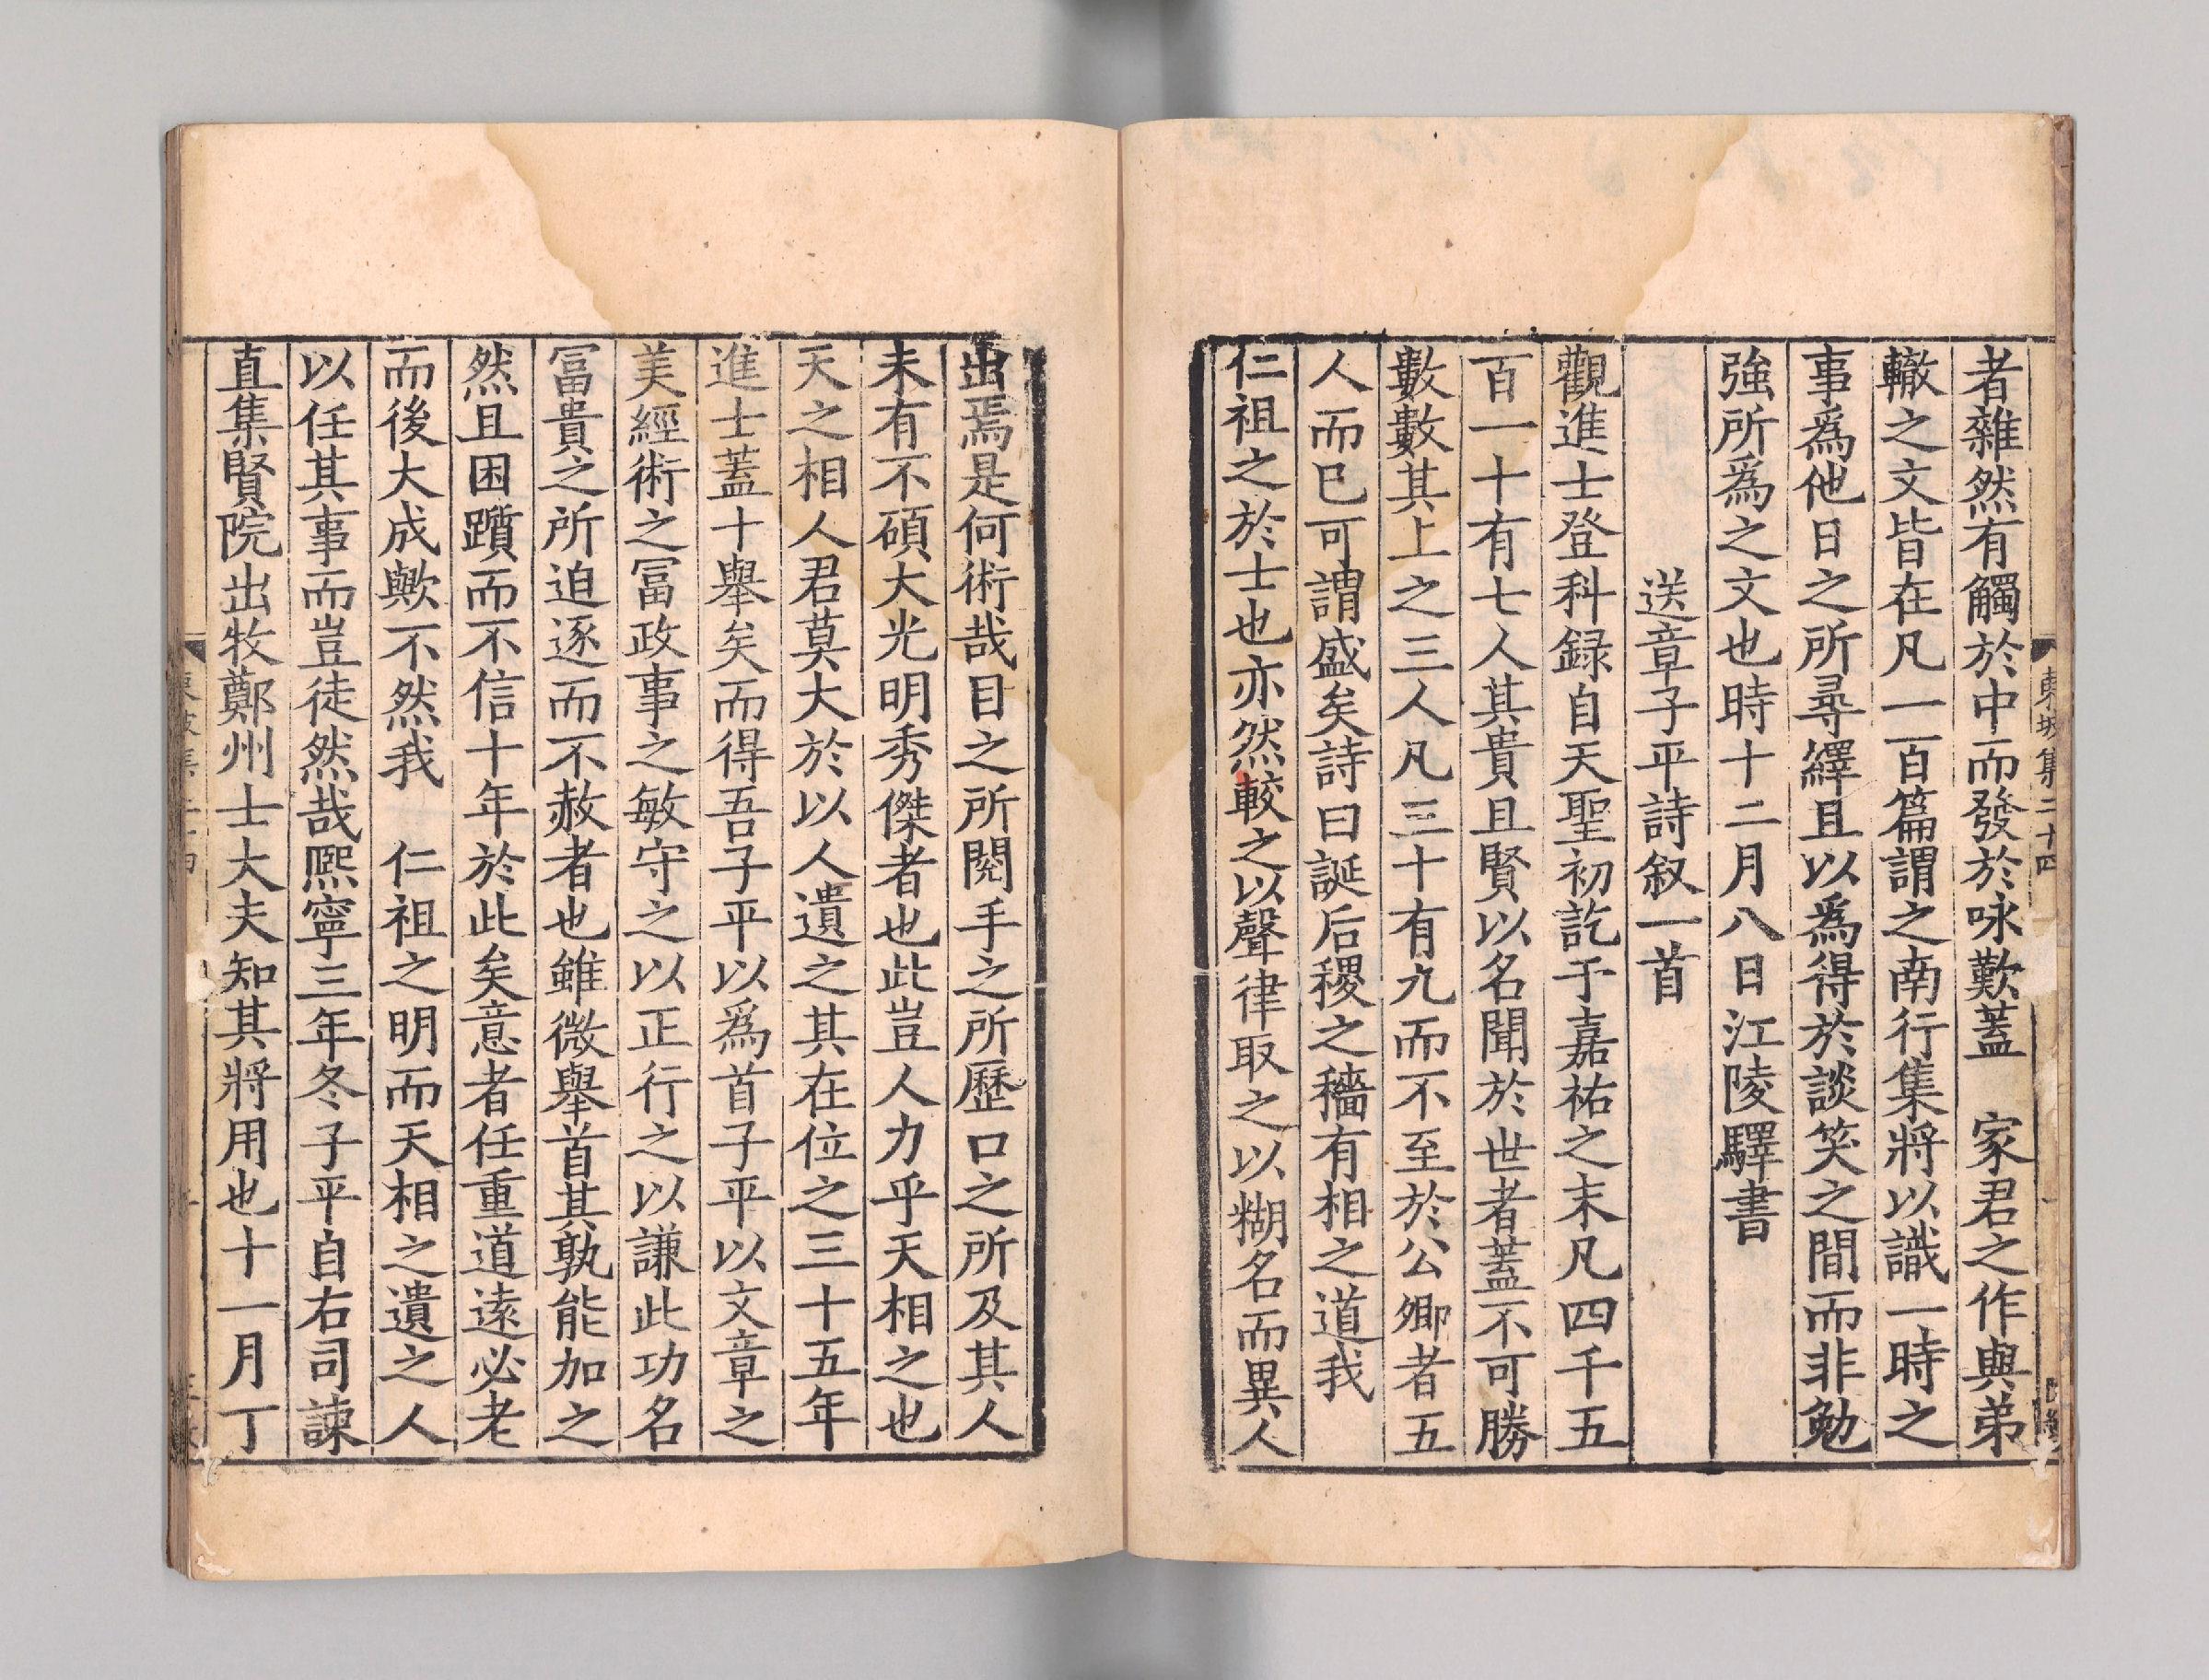 者雜然有觸於中而發於咏歎蓋　家君之作與弟
轍之文皆在凡一百篇謂之南行集將以識一時之
事爲他日之所尋繹且以爲得於談笑之間而非勉
強所爲之文也時十二月八日江陵驛書
送章子平詩叙一首
觀進士登科録自天聖初訖于嘉祐之末凡四千五
百一十有七人其貴且賢以名聞於世者蓋不可勝
數數其上之三人凡三十有九而不至於公卿者五
人而已可謂盛矣詩曰誕后稷之穡有相之道我
仁祖之於士也亦然較之以聲律取之以糊名而異人
出焉是何術哉目之所閱手之所歷口之所及其人
未有不碩大光明秀傑者也此豈人力乎天相之也
天之相人君莫大於以人遺之其在位之三十五年
進士蓋十舉矣而得吾子平以爲首子平以文章之
美經術之冨政事之敏守之以正行之以謙此功名
冨貴之所迫逐而不赦者也雖微舉首其孰能加之
然且困躓而不信十年於此矣意者任重道遠必老
而後大成歟不然我　仁祖之明而天相之遺之人
以任其事而豈徒然哉熈寧三年冬子平自右司諫
直集賢院出牧鄭州士大夫知其將用也十一月丁
東坡集二十四